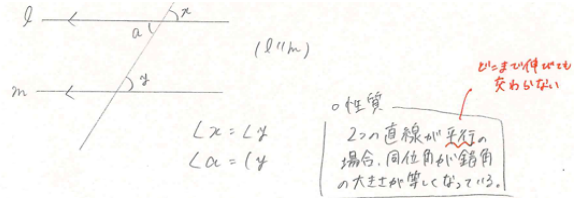 l
x
a
(l // m)
m
y
∠x = ∠y
∠a = ∠y
どこまで伸びても
交わらない
○性質
2つの直線が平行の
場合、同位角が錯角
の大きさが等しくなっている。